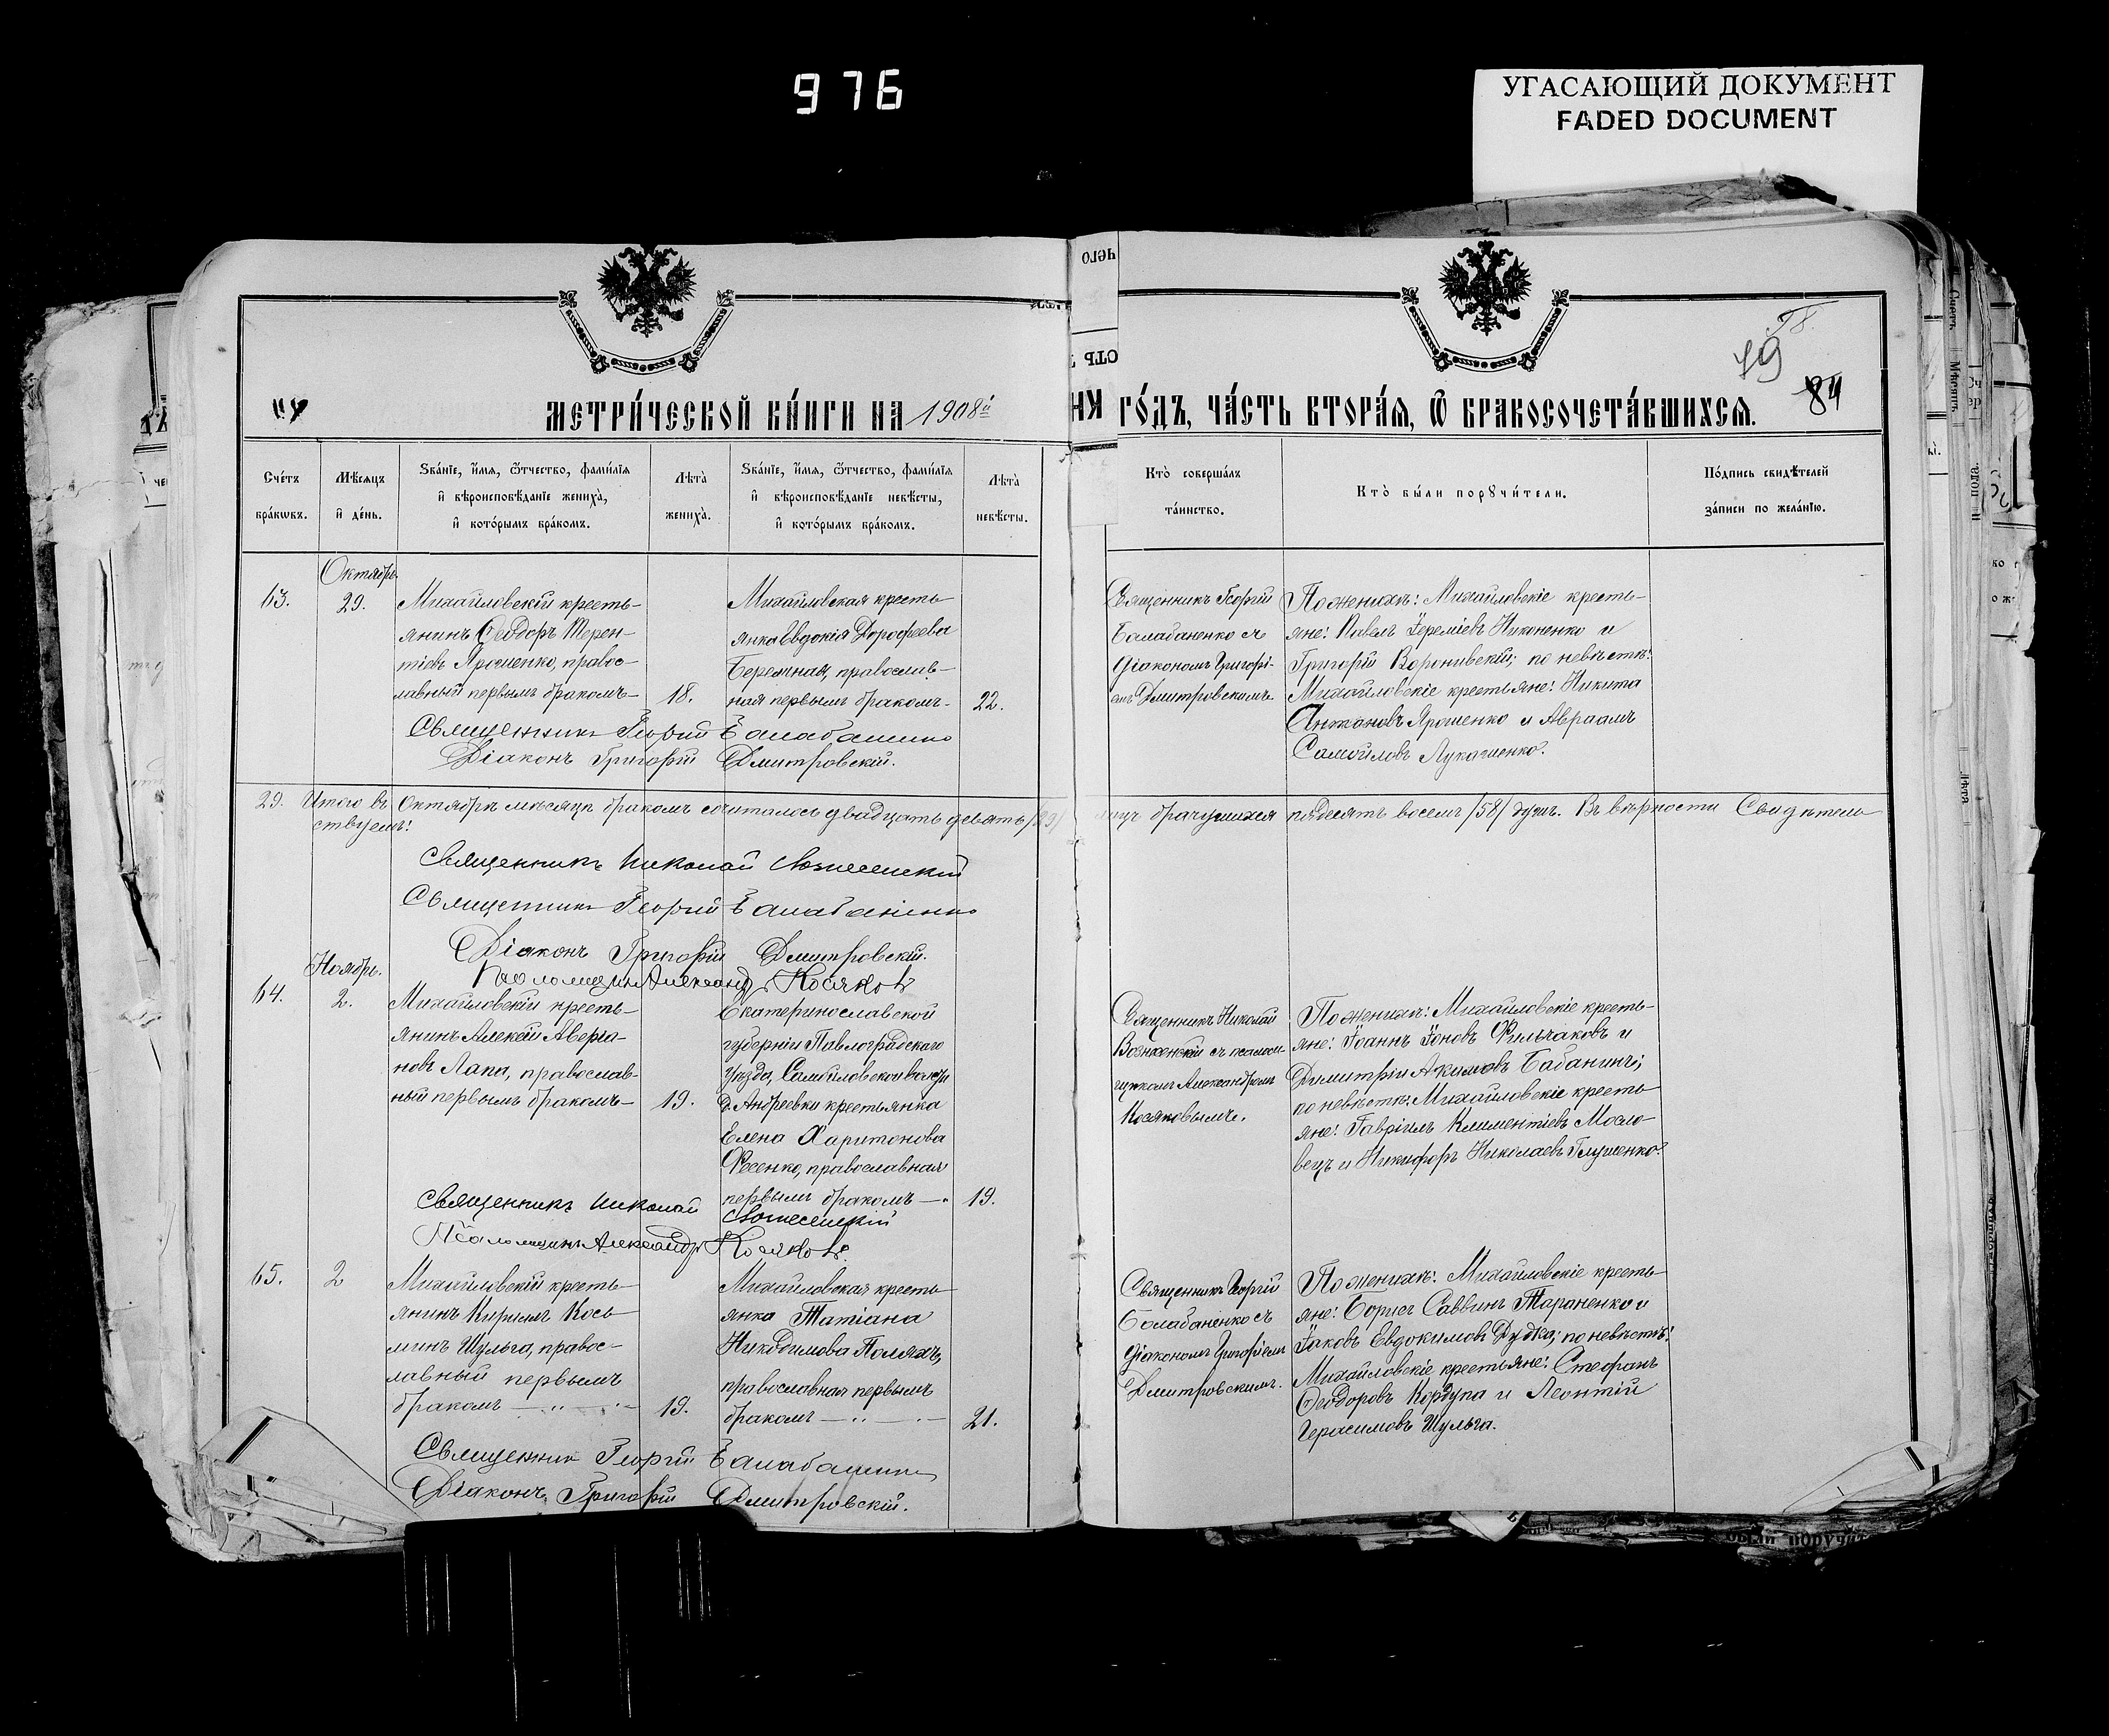 976
УГАСАЮЩИЙ ДОКУМЕНТ
FADED DOCUMENT
МЕТРИ́ЧЕСКОЙ КНИ́ГИ НА 1908й
ГО́ДЪ, ЧА́СТЬ ВТОРА́Я, Ѿ БРАКОСОЧЕТА́ВШИХСЯ.
19
84
Сче́тъ бра́кωвъ.
Мѣ́сяцъ и҆ де́нь.
Ѕва́нїе, и҆́мя, ѻ҆́тчество, фами́лїя
и҆ вѣроисповѣ́данїе жениха̀,
и҆ кото́рымъ бра́комъ.
Лѣта̀ жениха̀.
Ѕва́нїе, и҆́мя, ѻ҆́тчество, фами́лїя
и҆ вѣроисповѣ́данїе невѣ́сты,
и҆ кото́рымъ бра́комъ.
Лѣта̀ невѣ́сты.
Кто̀ соверша́лъ
та́инство.
Кто̀ бы́ли порꙋчи́тели.
По́дпись свидѣ́телей
за́писи по жела́нїю.
63.
Октябрь
29.
Михайловскій кресть-
янинъ Ѳеодоръ Терен-
тіевъ Ярошенко, правос-
лавный первымъ бракомъ-
18.
Михайловская кресть-
янка Евдокія Дорофеева
Бережная, православ-
ная первымъ бракомъ-
22.
Священникъ Георгій
Балабаненко съ
діакономъ Григорі-
емъ Дмитровскимъ.
По женихѣ: Михайловскіе кресть-
яне: Павелъ Іереміевъ Никоненко и
Григорій Воронивскій; по невѣстѣ:
Михайловскіе крестьяне: Никита
Ярошенко и Авраамъ
Самойловъ Лукашенко.
Священникъ Георгій Балабаненко
Діаконъ Григорій Дмитровскій.
29. Итого въ Октябрѣ мѣсяцѣ бракомъ сочиталось двадцать девять /29/ лицъ брачущихся пядесятъ восемь /58/ душъ. Въ вѣрности Свидѣтель-
ствуемъ:
Священникъ Николай Вознесенскій
Священникъ Георгій Балабаненко
Діаконъ Григорій Дмитровскій.
Псаломщикъ Александръ Косяковъ
64.
Ноябрь.
2.
Михайловскій кресть-
янинъ Алексѣй Аверія-
новъ Лапа, православ-
ный первымъ бракомъ-
19.
Екатеринославской
губерніи Павлоградскаго
уѣзда, Самойловской волости
д. Андреевки крестьянка
Елена Харитонова
Фесенко, православная
первымъ бракомъ —
19.
Священникъ Николай
Вознесенскій съ псалом-
щикомъ Александромъ
Косяковымъ.
По женихѣ: Михайловскіе кресть-
яне: Іоаннъ Іоновъ Фильчаковъ и
Димитрій Акимовъ Бабанинъ;
по невѣстѣ: Михайловскіе кресть-
яне: Гавріилъ Климентіевъ Мосло-
вецъ и Никифоръ Николаевъ Глушенко.
Священникъ Николай Вознесенскій
Псаломщикъ Александръ Косяковъ.
65.
2
Михайловскій кресть-
янинъ Кириллъ Кось-
минъ Шульга, правос-
лавный первымъ
бракомъ —
19.
Михайловская кресть-
янка Татіана
Никодимова Поляхъ,
православная первымъ
бракомъ —
21.
Священникъ Георгій
Балабаненко съ
діакономъ Григоріемъ
Дмитровскимъ.
По женихѣ: Михайловскіе кресть-
яне: Борисъ Саввинъ Тараненко и
Іаковъ Евдокимовъ Дудка; по невѣстѣ:
Михайловскіе крестьяне: Стефанъ
Ѳеодоровъ Кордупа и Леонтій
Герасимовъ Шульга.
Священникъ Георгій Балабаненко
Діаконъ Григорій Дмитровскій.